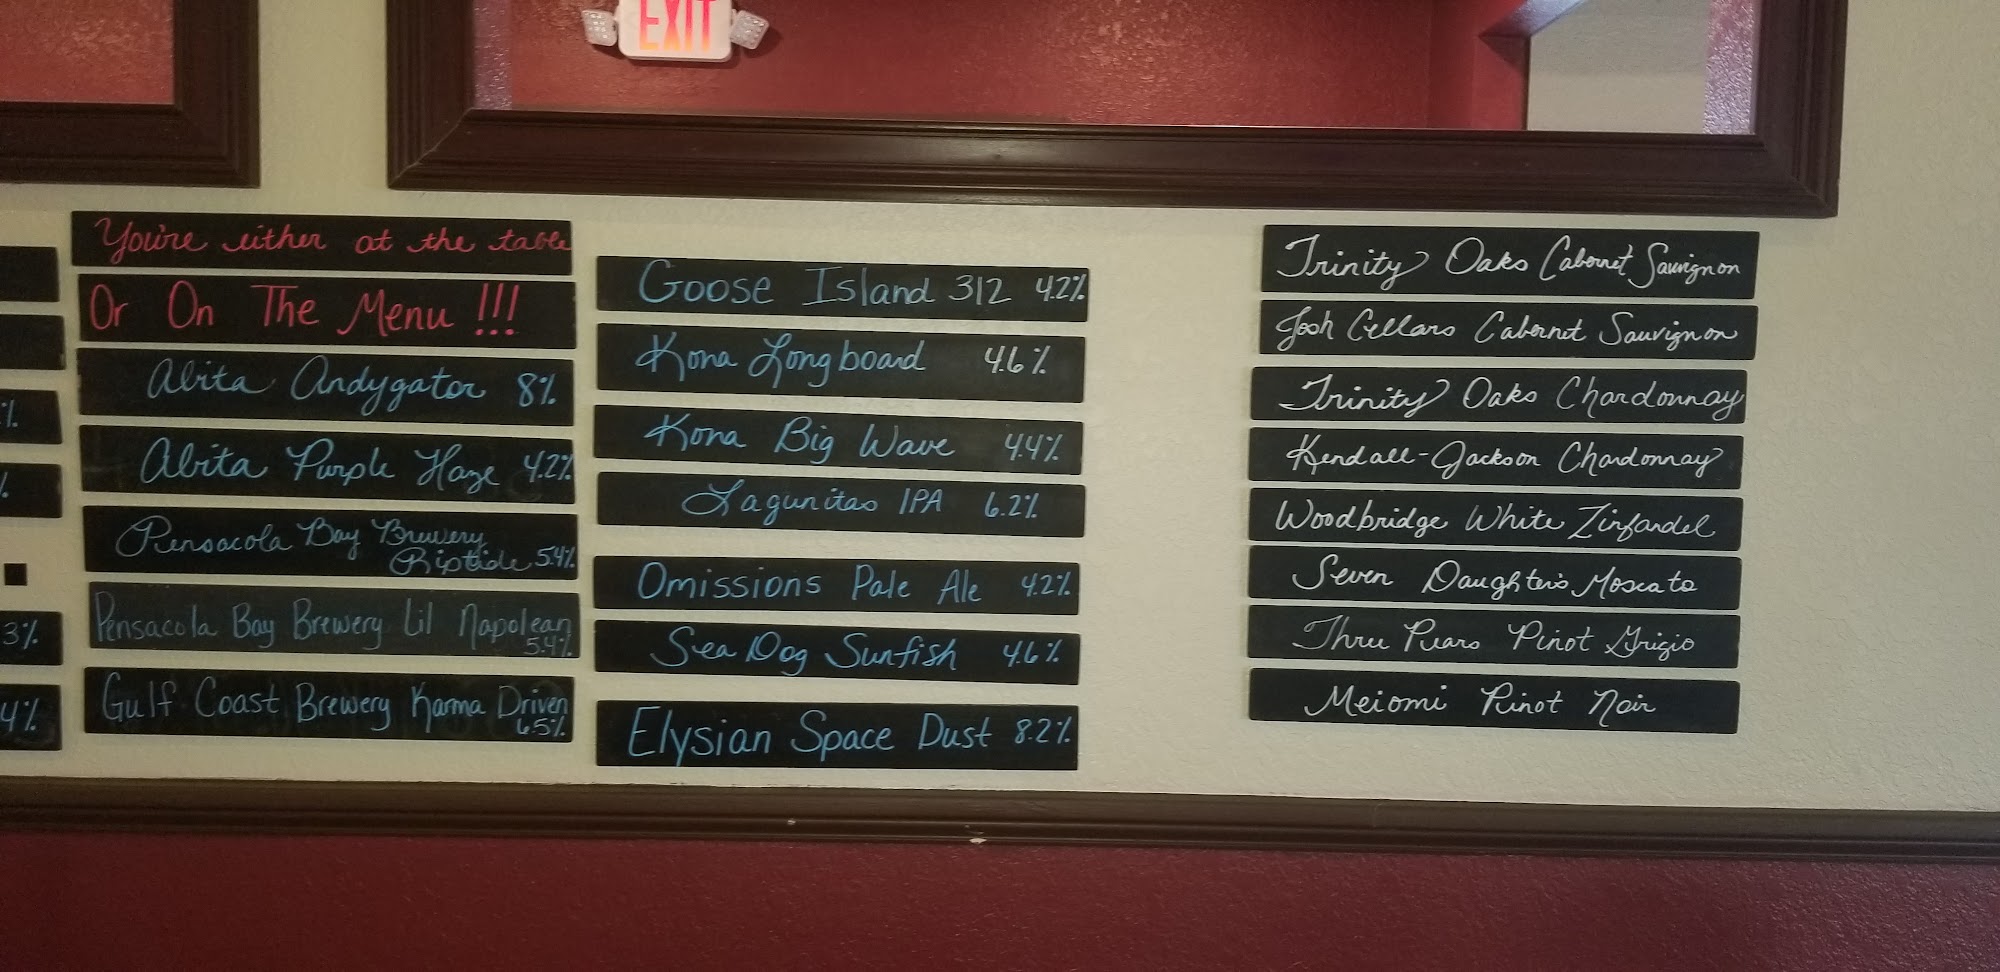 EXIT
%
%
3%
4%
You're either at the table
Or On The Menu !!!
Abita Andygator 8%
Abita Purple Haze 4.2%
Pensacola Bay Brewery
Riptide 5.4%
Pensacola Bay Brewery Lil Napolean
5.4%
Gulf Coast Brewery Karma Driven
6.5%
Goose Island 312 4.2%
Kona Longboard 4.6%
Kona Big Wave 4.4%
Lagunitas IPA 6.2%
Omissions Pale Ale 4.2%
Sea Dog Sunfish 4.6%
Elysian Space Dust 8.2%
Trinity Oaks Cabernet Sauvignon
Josh Cellars Cabernet Sauvignon
Trinity Oaks Chardonnay
Kendall-Jackson Chardonnay
Woodbridge White Zinfandel
Seven Daughters Moscato
Three Pears Pinot Grigio
Meiomi Pinot Noir